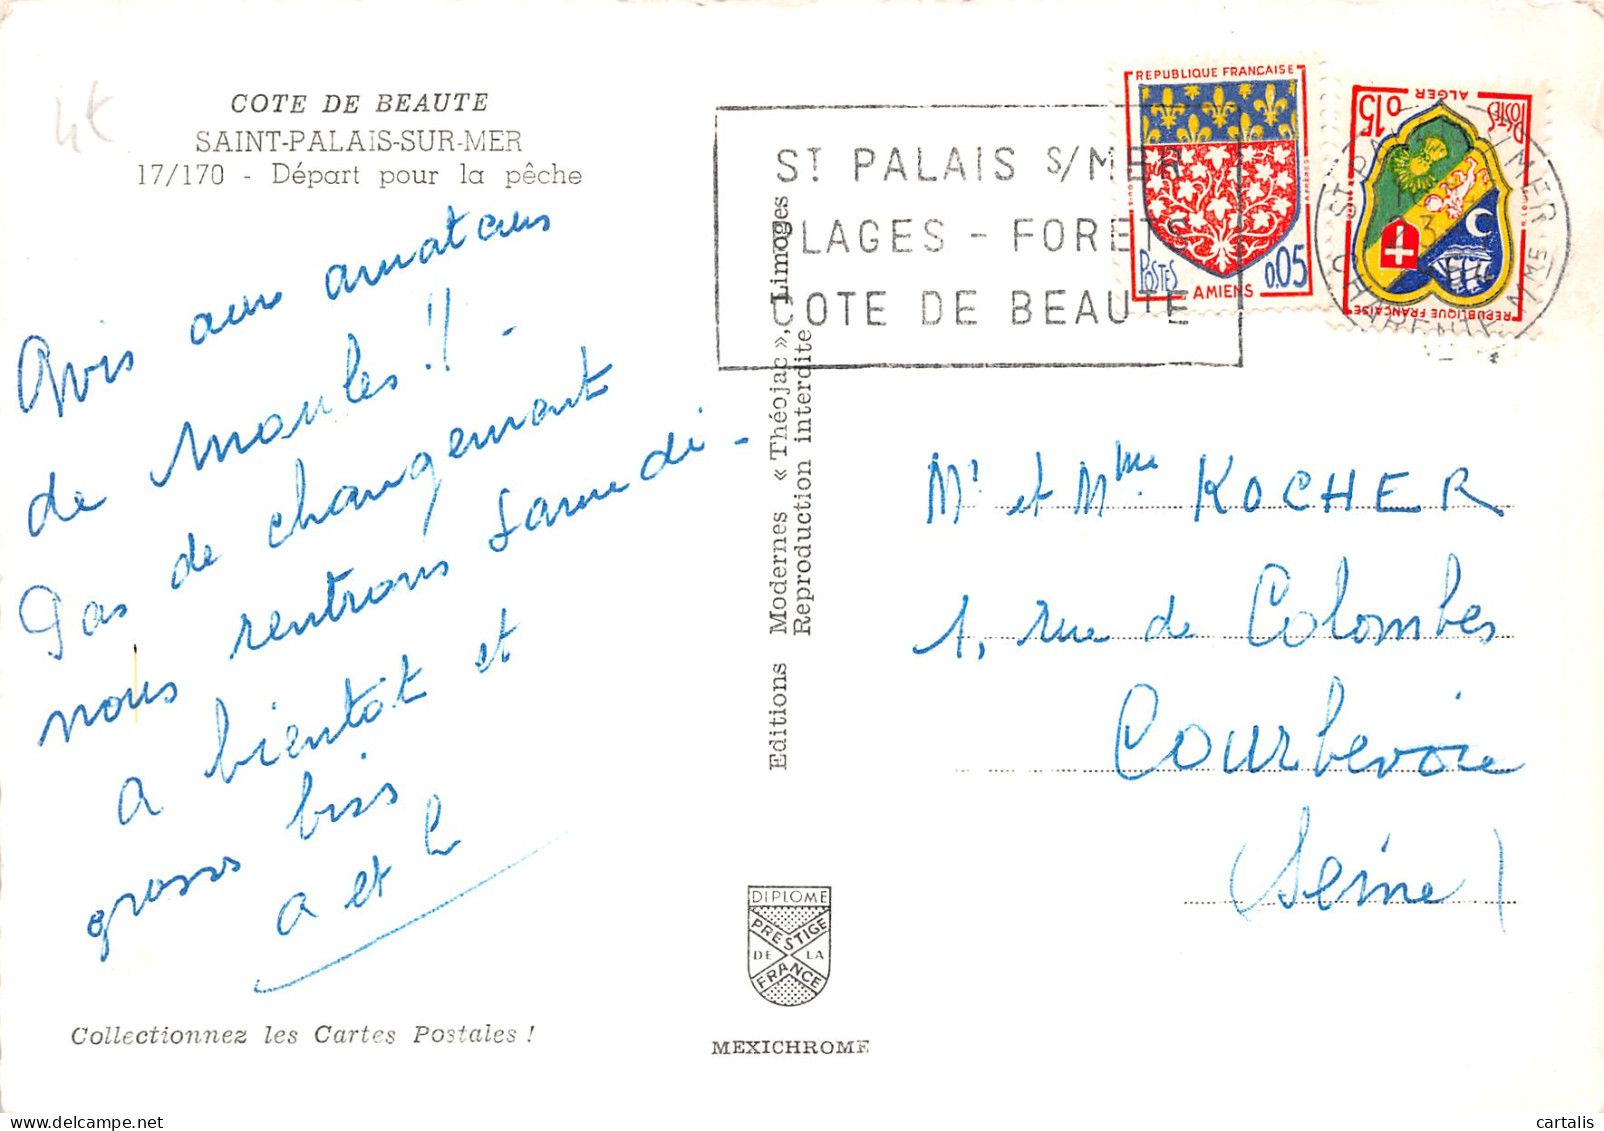 4€
COTE DE BEAUTE
SAINT-PALAIS-SUR-MER
17/170 - Départ pour la pêche
Avis aux amateurs
de moules !! -
Pas de changement
nous rentrons samedi -
a bientôt et
grosses bises
a et h
Collectionnez les Cartes Postales !
Editions Modernes « Théojac », Limoges
Reproduction interdite
DIPLOME
PRESTIGE
DE LA
FRANCE
MEXICHROME
ST PALAIS S/MER
PLAGES - FORETS
COTE DE BEAUTE
REPUBLIQUE FRANÇAISE
POSTES
0,05
AMIENS
0,15
ALGER
POSTES
REPUBLIQUE FRANÇAISE
Mr et Mme KOCHER
1, rue de Colombes
Courbevoie
(Seine)
cartalis